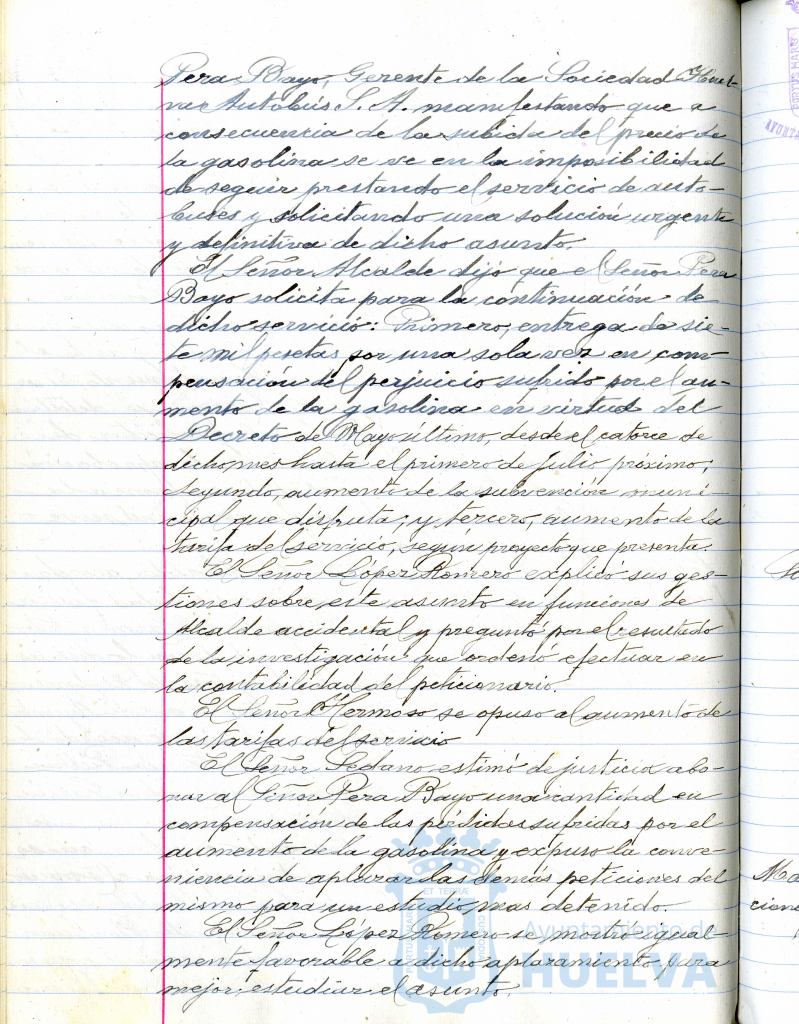 Pera Bayo, Gerente de la Sociedad Huel-
var Autobús S. A. manifestando que a
consecuencia de la subida del precio de
la gasolina se ve en la imposibilidad
de seguir prestando el servicio de auto-
buses y solicitando una solución urgente
y definitiva de dicho asunto.
El Señor Alcalde dijo que el Señor Pera
Bayo solicita para la continuación de
dicho servicio: Primero, entrega de sie-
te mil pesetas por una sola vez en com-
pensación del perjuicio sufrido por el au-
mento de la gasolina en virtud del
Decreto de Mayo último, desde el catorce de
dicho mes hasta el primero de Julio próximo;
segundo, aumento de la subvención muni-
cipal que disfruta; y tercero, aumento de la
tarifa del servicio, según proyecto que presenta.
El Señor López Romero explicó sus ges-
tiones sobre este asunto en funciones de
Alcalde accidental y preguntó por el resultado
de la investigación que ordenó efectuar en
la contabilidad del peticionario.
El Señor Hermoso se opuso al aumento de
las tarifas del servicio
El Señor Sedano estimó de justicia abo-
nar al Señor Pera Bayo una cantidad en
compensación de las pérdidas sufridas por el
aumento de la gasolina y expuso la conve-
niencia de aplazar las demás peticiones del
mismo para un estudio mas detenido
El Señor López Romero se mostró igual-
mente favorable a dicho aplazamiento para
mejor estudiar el asunto.
Ayuntamiento de
HUELVA